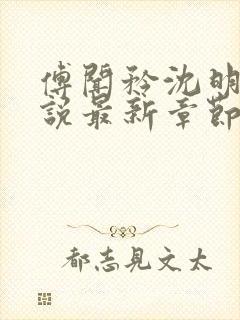 傅聞矜沈明
說最新章節
都志見文太